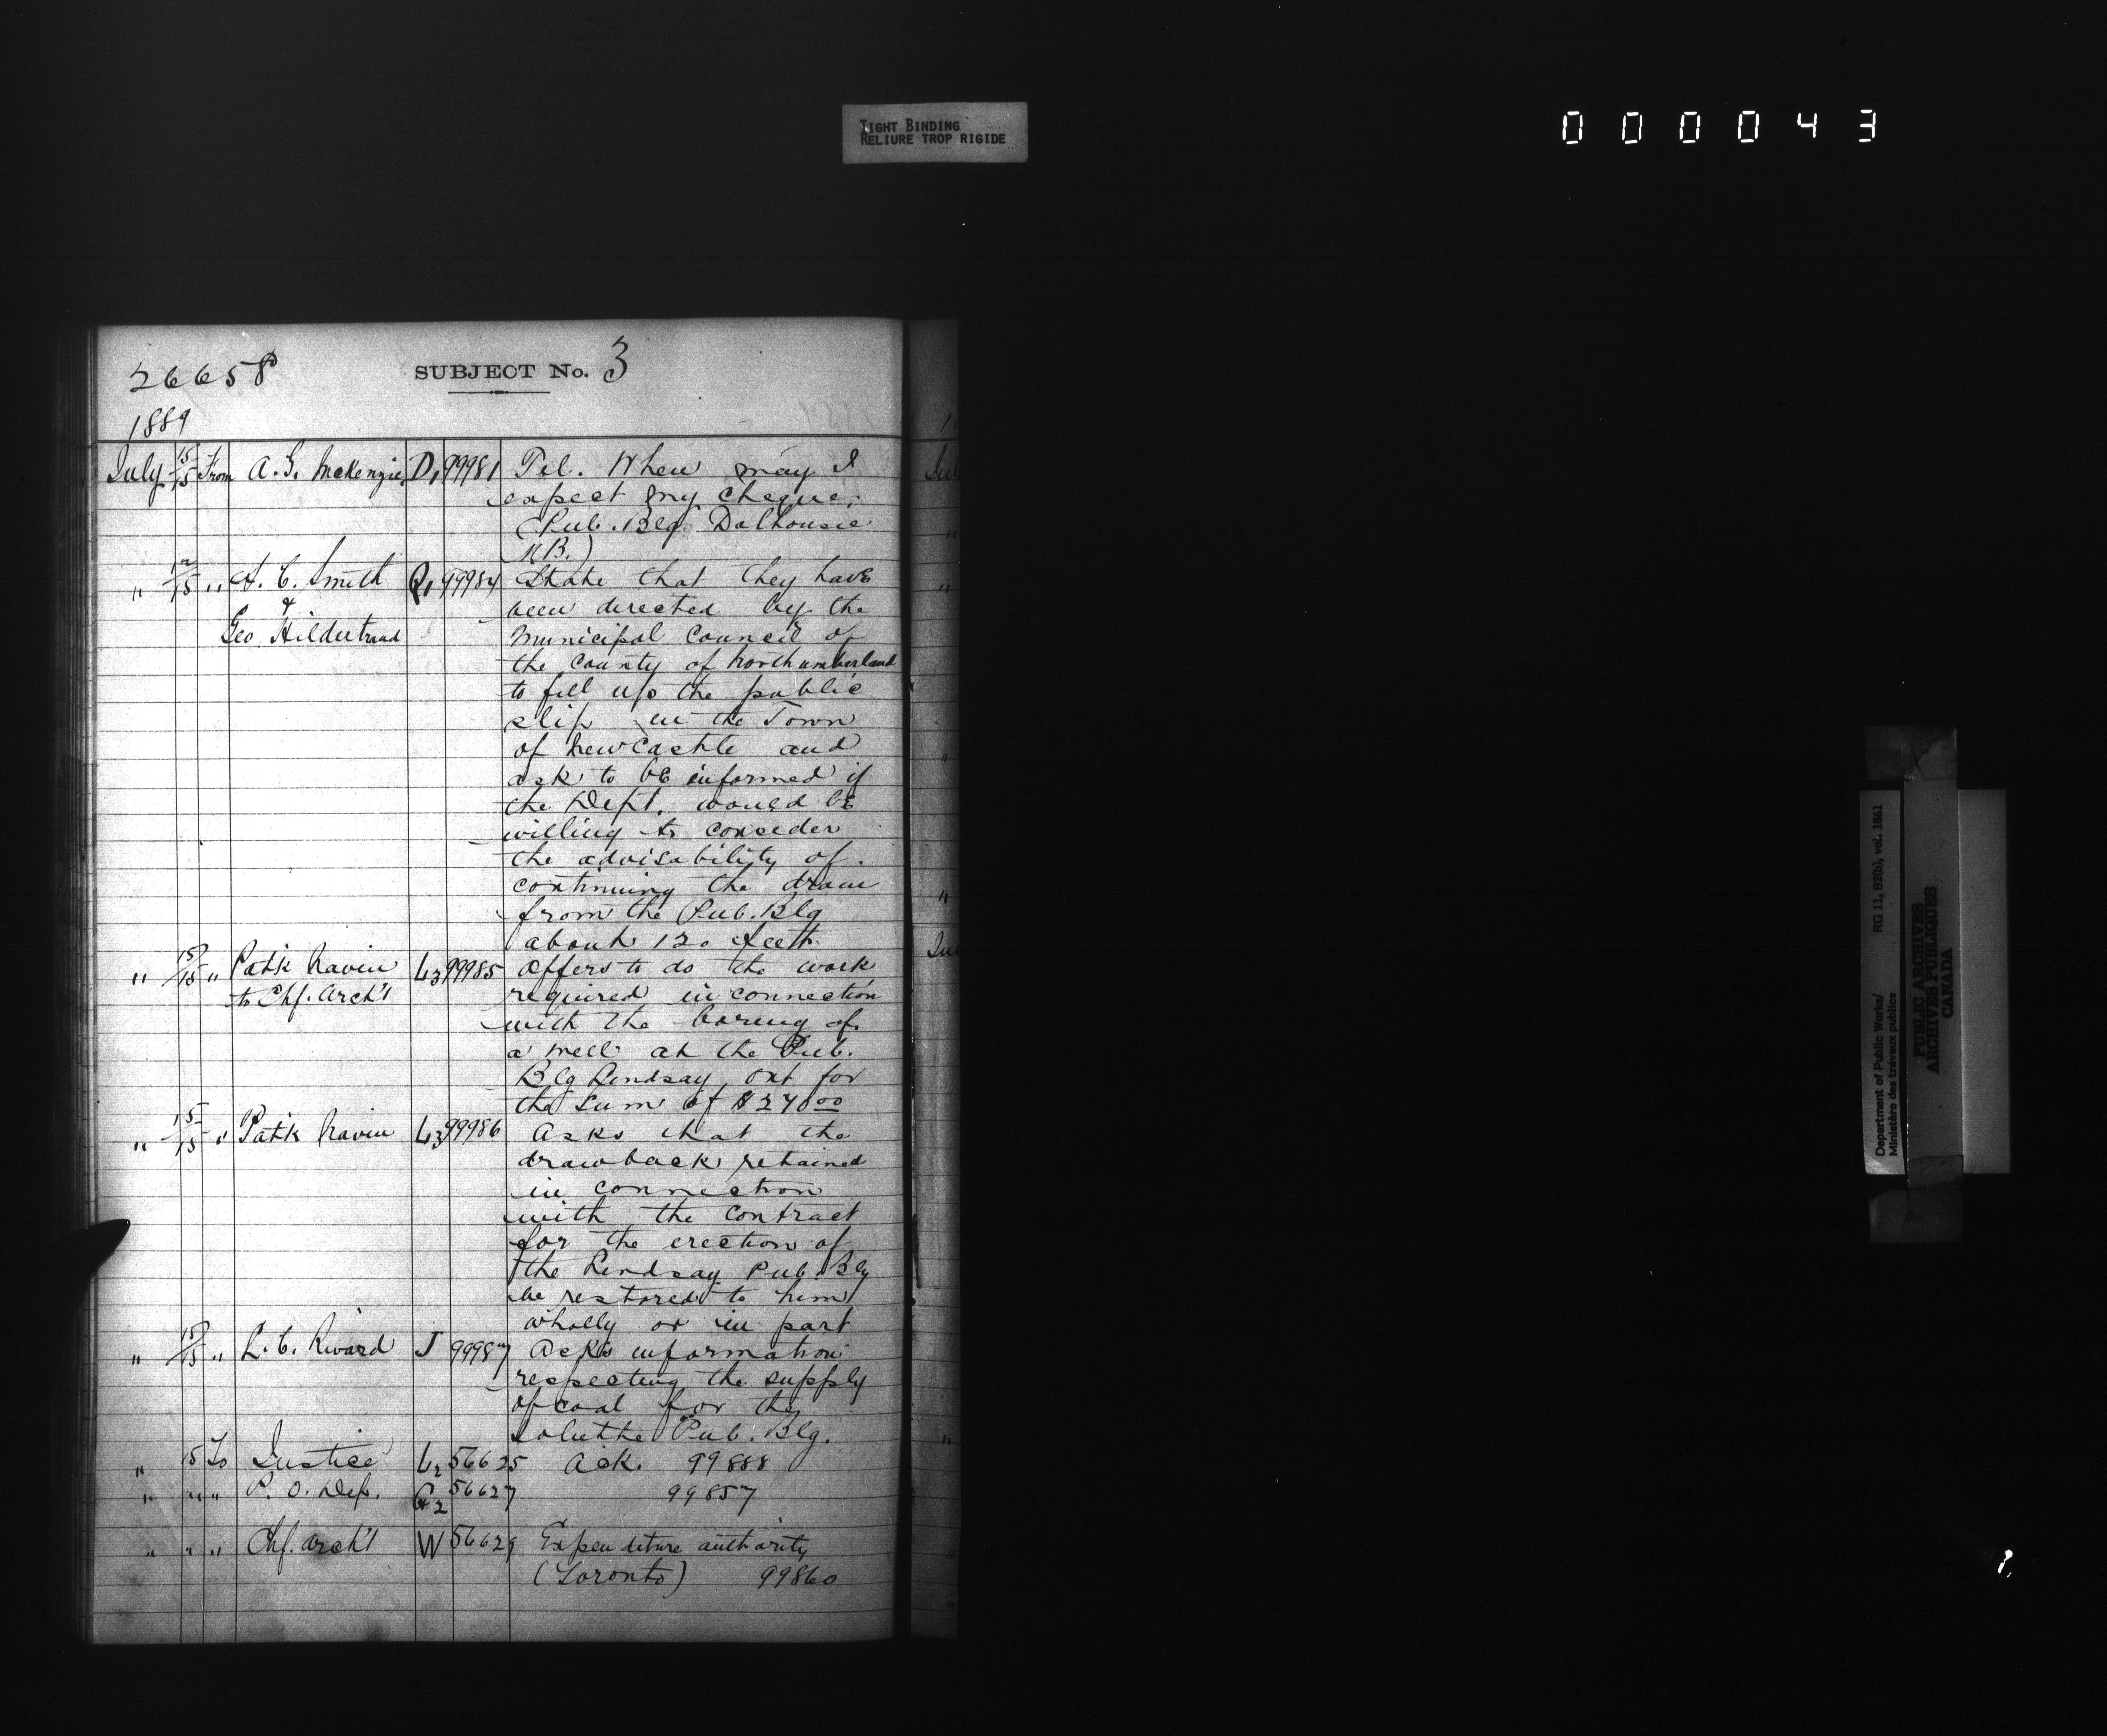 TIGHT BINDING
RELIURE TROP RIGIDE
000043
26658
SUBJECT No. 3
1889
July 15/15 From A. G. McKenzie D1 99981 Tel. When may I
expect my cheque.
(Pub. Blg Dalhousie
N.B.)
" 12/15 " A. C. Smith Q1 99984 State that they have
& been directed by the
Geo. Hildebrand Municipal Council of
the County of Northumberland
to fill up the public
slip in the Town
of Newcastle and
ask to be informed if
the Dept. would be
willing to consider
the advisability of
continuing the drain
from the Pub. Blg
about 120 feet.
" 15/15 " Patk Navin L3 99985 Offers to do the work
to Chf. Arch't required in connection
with the boring of
a well at the Pub.
Blg Lindsay, Ont for
the sum of $240 00
" 15/15 " Patk Navin L3 99986 Asks that the
drawback retained
in connection
with the contract
for the erection of
the Lindsay Pub. Blg
be restored to him
wholly or in part
" 15/15 " L. C. Rivard J 99987 Asks information
respecting the supply
of coal for the
Joliette Pub. Blg.
" 15 To Justice L2 56625 Ack. 99888
" " " P. O. Dep. G2 56627 99857
" " " Chf. Arch't W 56629 Expenditure authority
(Toronto) 99860
Department of Public Works/
Ministère des travaux publics
RG 11, B2(b), vol. 1861
PUBLIC ARCHIVES
ARCHIVES PUBLIQUES
CANADA